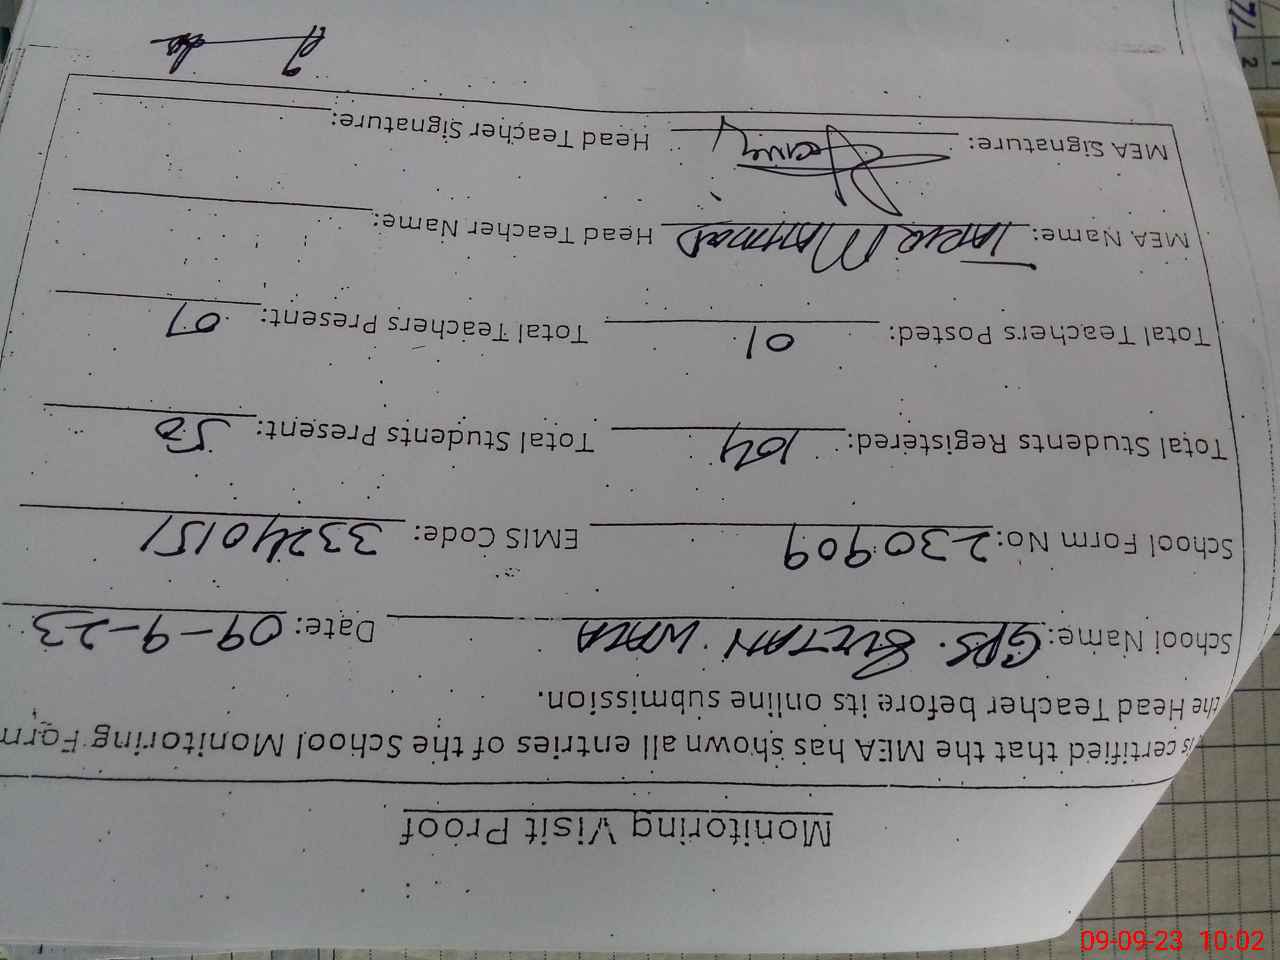 Monitoring Visit Proof
is certified that the MEA has shown all entries of the School Monitoring Form
the Head Teacher before its online submission.
School Name: GPS. SULTAN WALA Date: 09-9-23
School Form No: 230909 EMIS Code: 33240151
Total Students Registered: 104 Total Students Present: 50
Total Teachers Posted: 01 Total Teachers Present: 01
MEA Name: Head Teacher Name:
MEA Signature: Head Teacher Signature:
09-09-23 10:02